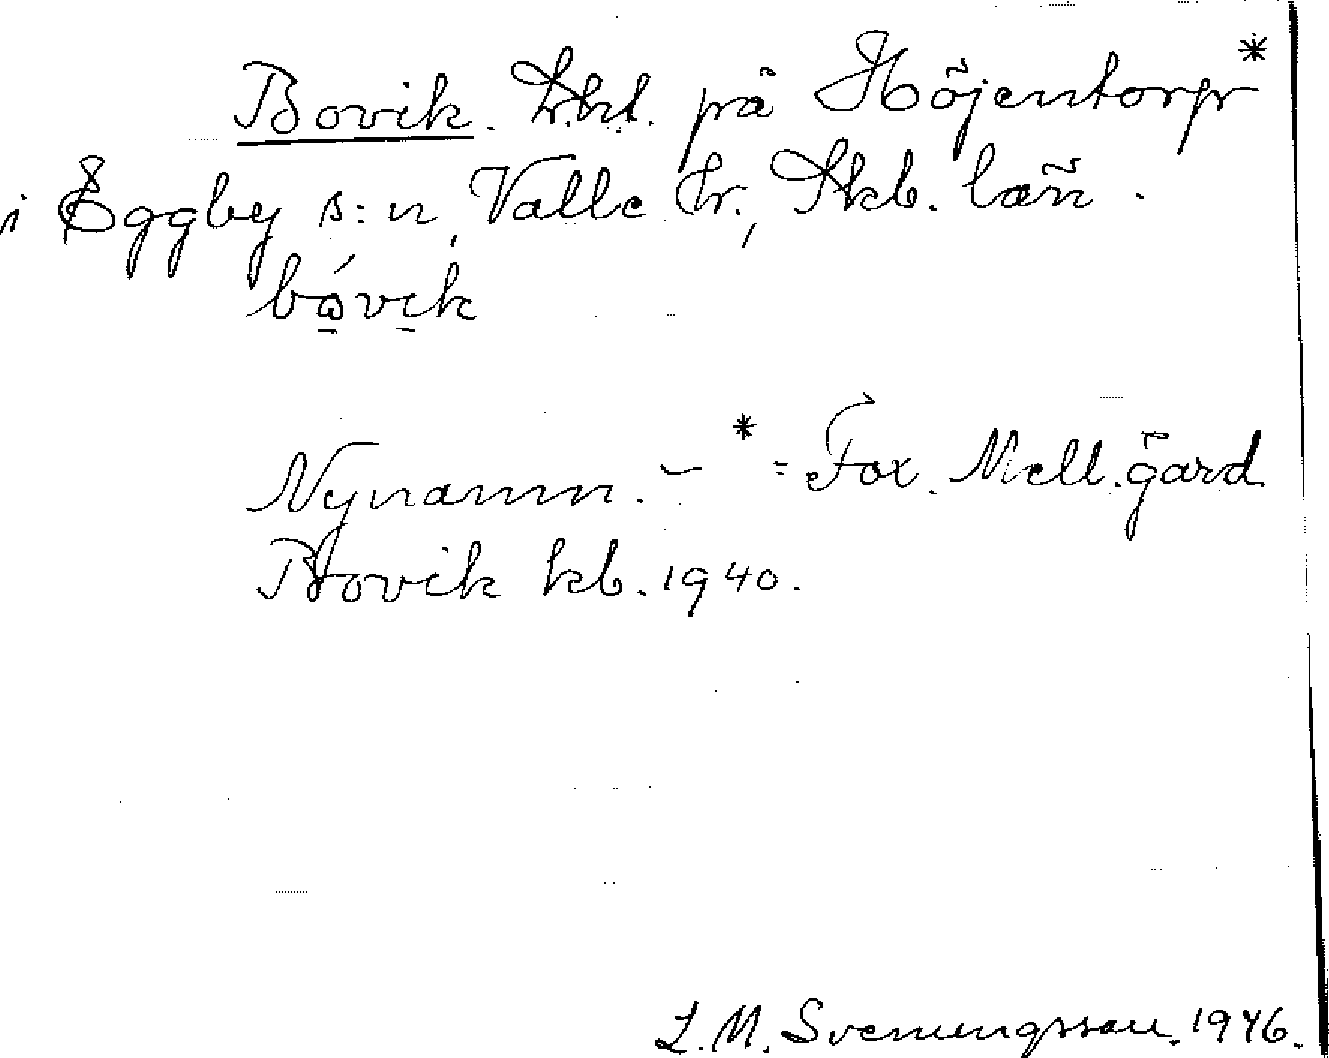 Bovik. Lht. på Höjentorp*
i Eggby s:n, Valle hr., Skb. län.
bóvik
Nynamn. – * = Fox. Mell.gård
Bovik kb. 1940.
L. M. Svenungsson. 1946.